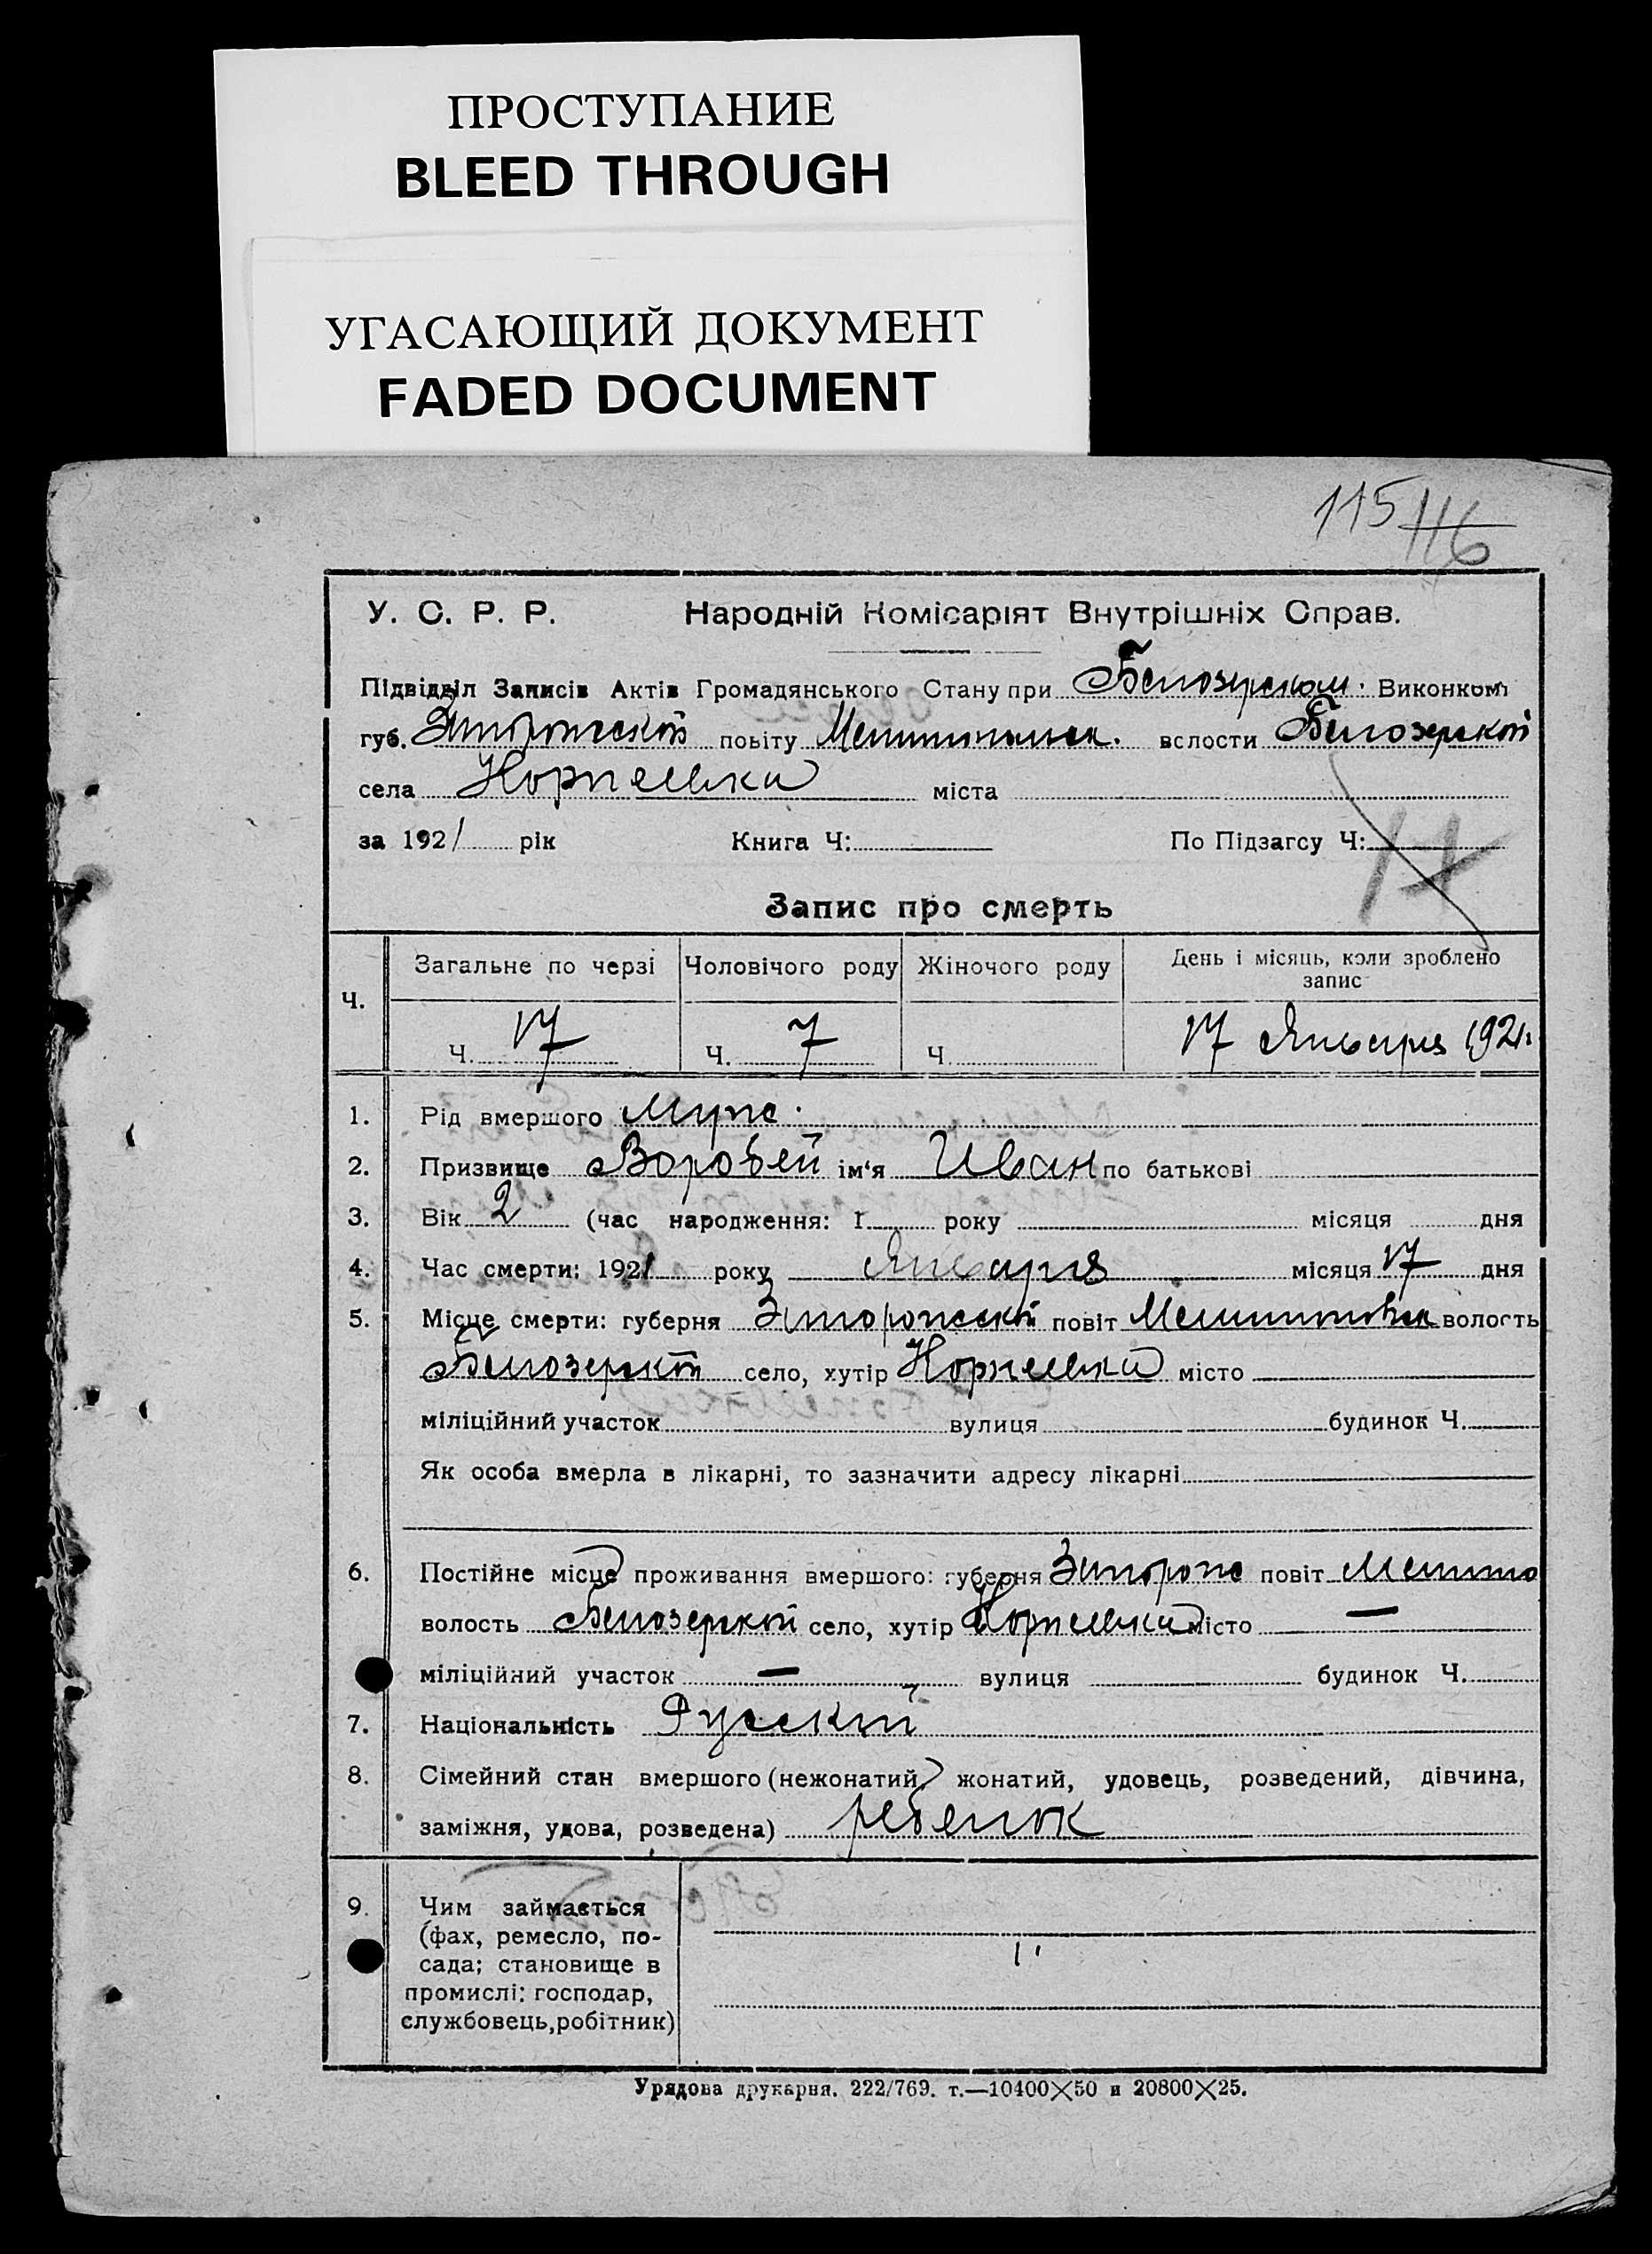 ПРОСТУПАНИЕ
BLEED THROUGH
УГАСАЮЩИЙ ДОКУМЕНТ
FADED DOCUMENT
115 116
У. С. Р. Р. Народній Комісаріят Внутрішніх Справ.
Підвідділ Записів Актів Громадянського Стану при Белозерском. Виконкомі
губ. Запорожской повіту Мелитопольск. волости Белозерской
села міста
за 1921 рік Книга Ч: По Підзагсу Ч: 17
Запис про смерть
Ч. Загальне по черзі Чоловічого роду Жіночого роду День і місяць, коли зроблено запис
Ч. 17 Ч. 7 Ч. 17 Января 1921.
1. Рід вмершого Муж.
2. Призвище Воробей ім'я Иван по батькові
3. Вік 2 (час народження: 1 року місяця дня
4. Час смерти: 1921 року Января місяця 17 дня
5. Місце смерти: губерня Запорожской повіт волость
Белозерской село, хутір місто
міліційний участок вулиця будинок Ч.
Як особа вмерла в лікарні, то зазначити адресу лікарні
6. Постійне місце проживання вмершого: губерня Запорож повіт Мелито
волость Белозерской село, хутір місто —
міліційний участок — вулиця будинок Ч.
7. Національність Русский
8. Сімейний стан вмершого (нежонатий, жонатий, удовець, розведений, дівчина,
заміжня, удова, розведена) ребенок
9. Чим займається
(фах, ремесло, по-
сада; становище в
промислі: господар,
службовець, робітник)
Урядова друкарня. 222/769. т.—10400×50 и 20800×25.